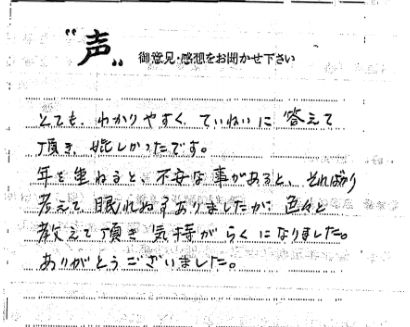 “声” 御意見・感想をお聞かせ下さい
とても、わかりやすく、ていねいに 答えて
頂き、嬉しかったです。
年を重ねると、不安な事があると、そればかり
考えて 眠れねずありましたが、色々と
教えて頂き 気持がらくになりました。
ありがとうございました。